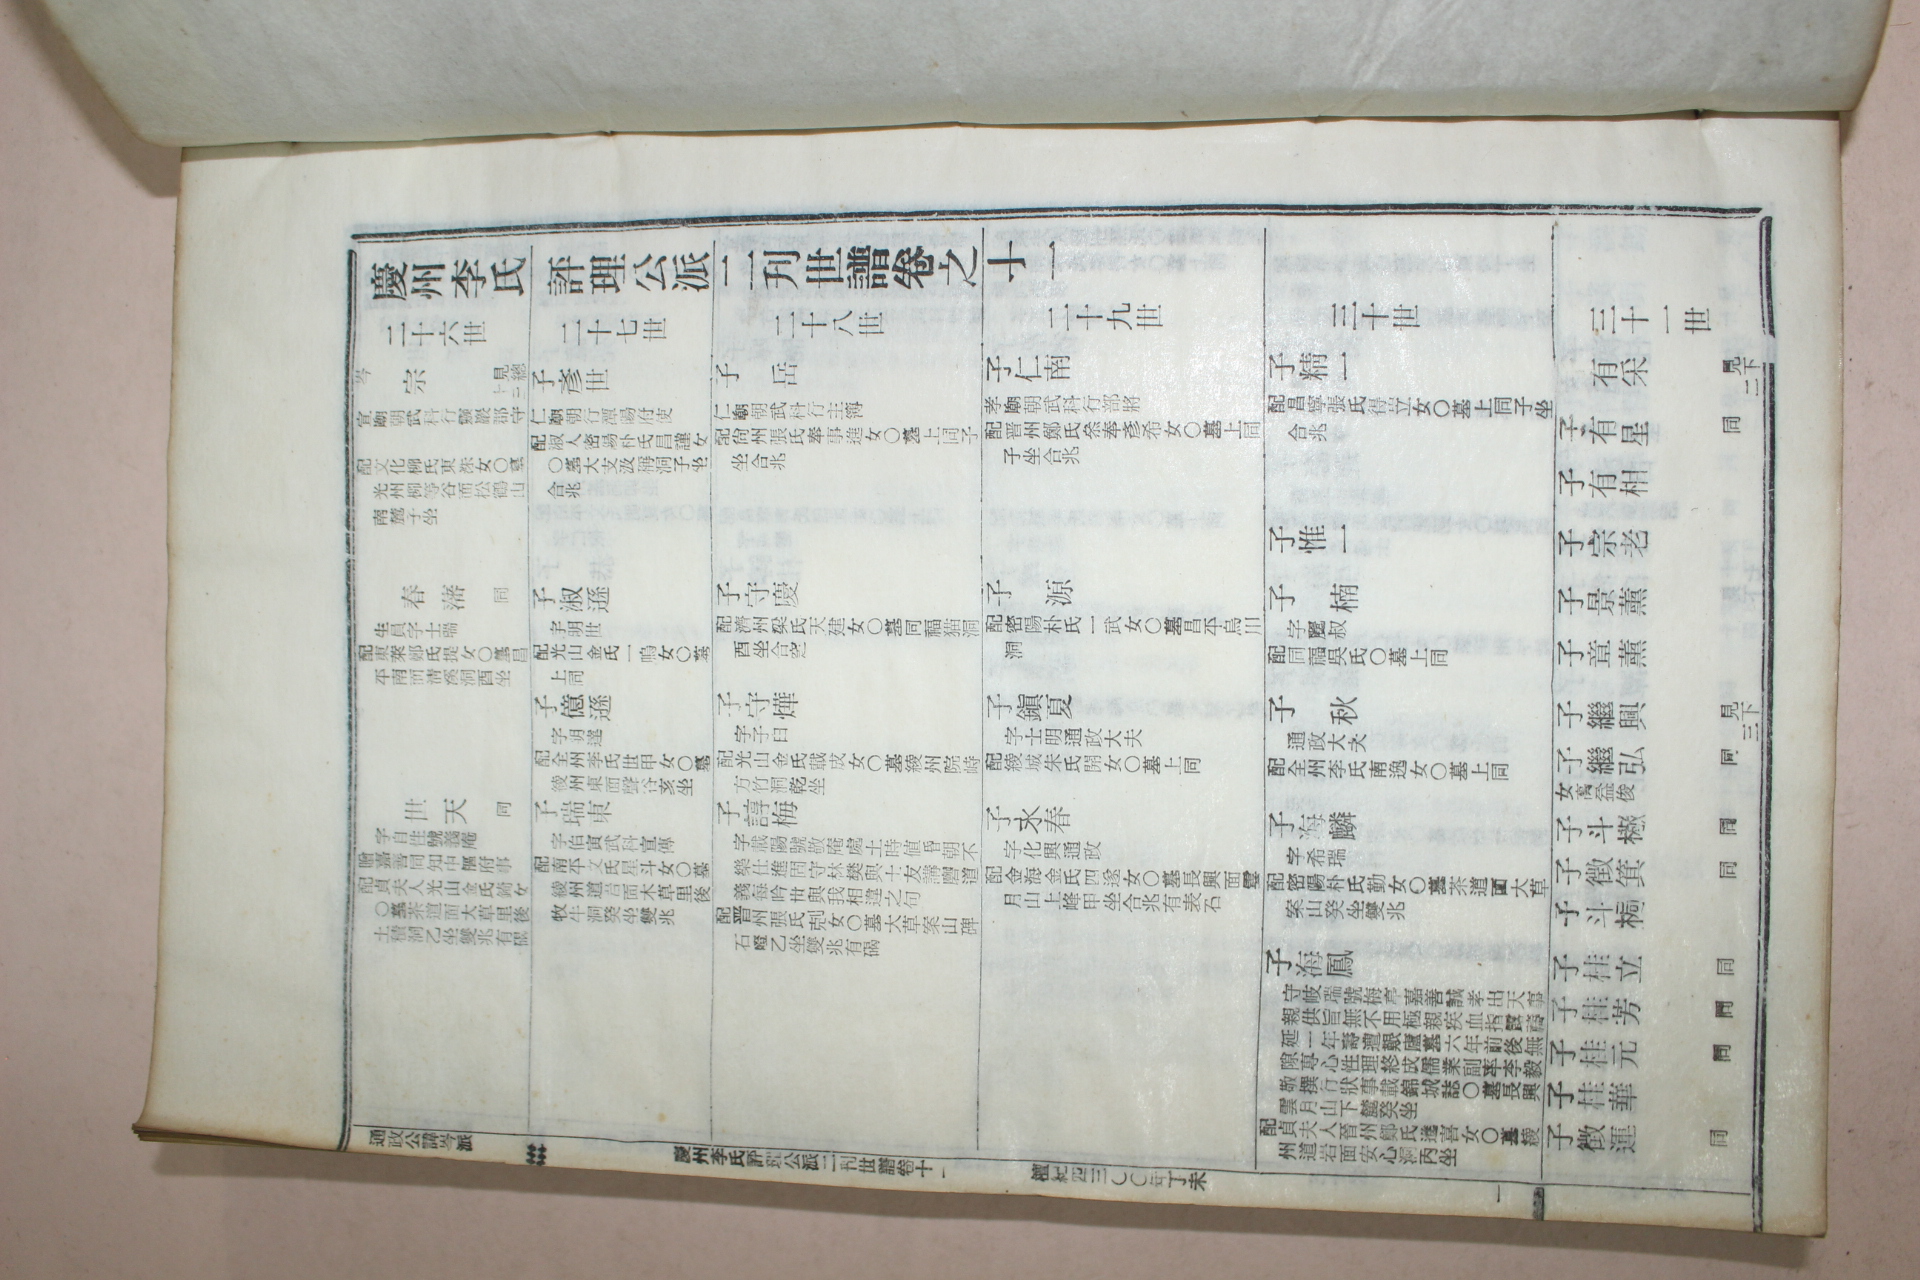 慶州李氏評理公派二刊世譜卷之十一
二十六世
宗
見總
宣廟朝武科行靈巖郡守
配文化柳氏東洙女〇墓
光州柳等谷面松鶴山
南麓子坐
春藩 同
生員字士瑞
配東萊鄭氏提女〇墓昌
平南面清溪洞酉坐
世天 同
字自性號義庵
贈嘉善同知中樞府事
配貞夫人光山金氏錡女
〇墓茶道面大草里後
土積洞乙坐雙兆有碣
二十七世
子彥世
仁廟朝行潭陽府使
配淑人密陽朴氏昌謹女
〇墓大支汲楠洞子坐
合兆
子淑遜
字明世
配光山金氏一鳴女〇墓
上同
子億遜
字明達
配全州李氏世甲女〇墓
綾州東面聲谷亥坐
子瑞東
字伯寅武科宣傳
配南平文氏星斗女〇墓
綾州道岩面木草里後
牧牛洞癸坐雙兆
二十八世
子岳
仁廟朝武科行主簿
配尙州張氏奉事進女〇墓上同子
坐合兆
子守慶
配濟州梁氏天建女〇墓同福猫洞
酉坐合窆
子守燁
字子曰
配光山金氏載成女〇墓綾州院峙
方竹洞乾坐
子諄梅
字載陽號敬庵處士時値昏朝不
樂仕進固守林樊與士友講磨道
義每吟世與我相違之句
配晋州張氏剋女〇墓大草案山碑
石嶝乙坐雙兆有碣
二十九世
子仁南
孝廟朝武科行部將
配晋州鄭氏叅奉彥希女〇墓上同
子坐合兆
子源
配密陽朴氏一武女〇墓昌平烏川
洞
子鎭夏
字士明通政大夫
配綾城朱氏開女〇墓上同
子永春
字化興通政
配金海金氏四遂女〇墓長興面雲
月山上峰甲坐合兆有表石
三十世
子精一
配昌寧張氏得岦女〇墓上同子坐
合兆
子惟一
子楠
字龍叔
配同福吳氏〇墓上同
子秋
通政大夫
配全州李氏南逸女〇墓上同
子海麟
字希瑞
配密陽朴氏勤女〇墓茶道面大草
案山癸坐雙兆
子海鳳
守岐瑞號梅亭嘉善誠孝出天事
親供旨無不用極親疾血指露禱
延一年壽遭艱廬墓六年前後無
隙專心性理終成儒業副率李毅
敬撰行狀事載錦城誌〇墓長興
雲月山下麓癸坐
配貞夫人晋州鄭氏進喜女〇墓綾
州道岩面安心洞丙坐
三十一世
有采 見下二
子有星 同
子有相
子宗老
子景薰
子章薰
子繼興 見下三
子繼弘 同
女高益俊
子斗樾 同
子徵箕 同
子斗樾
子桂立 同
子桂芳 同
子桂元 同
子桂華
子徵運 同
通政公諱岑派
慶州李氏評理公派二刊世譜卷十一
檀紀四三〇〇年丁未
一